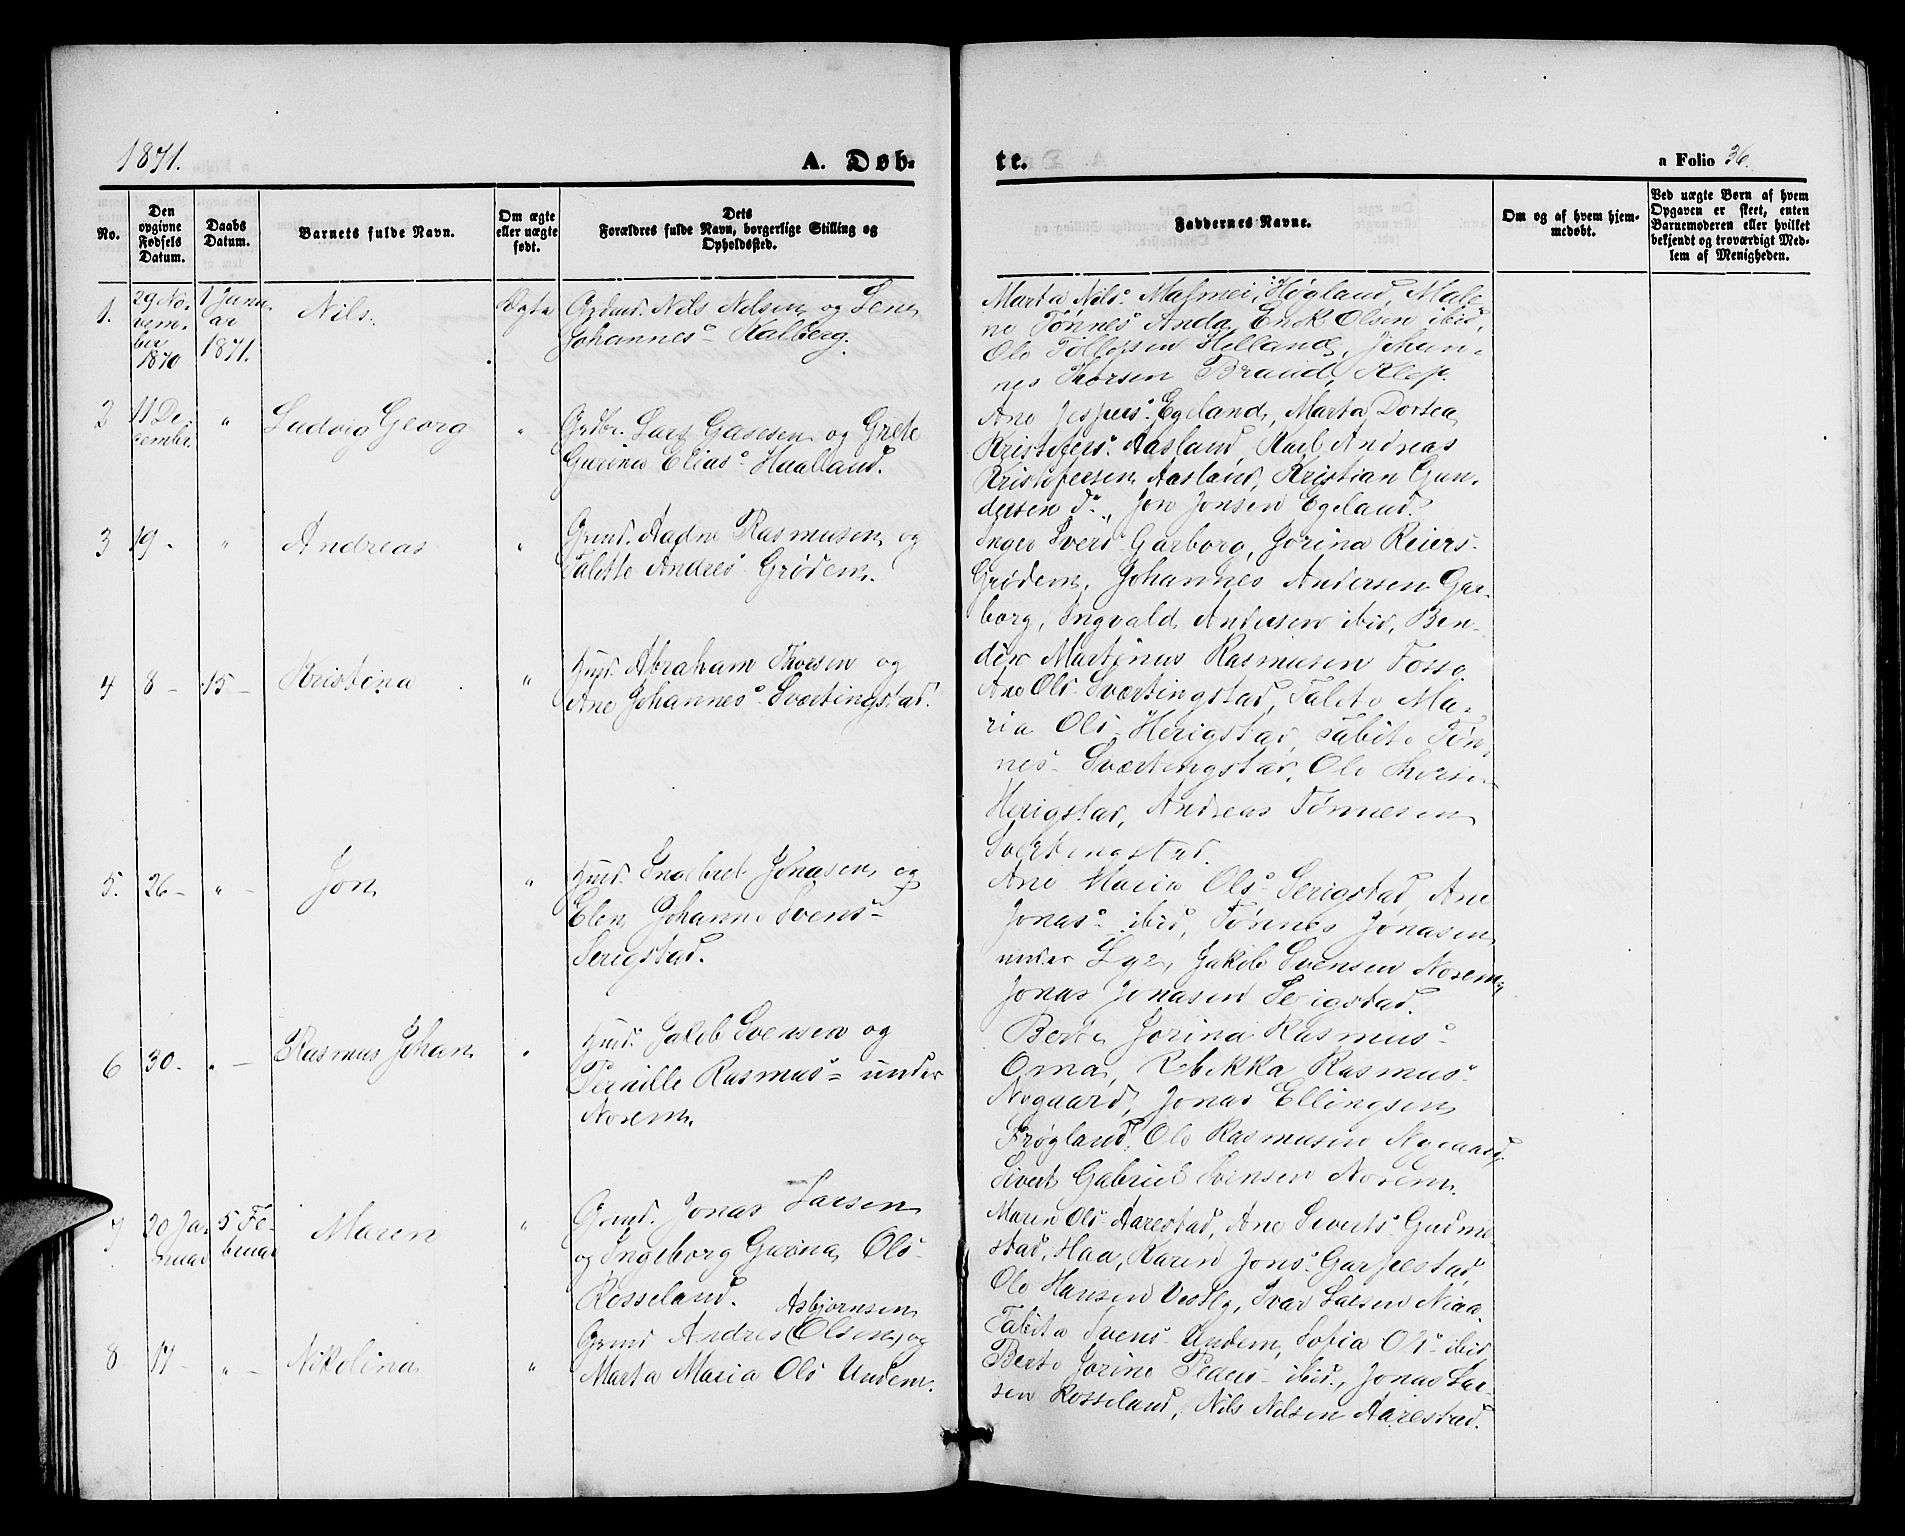 1871.
A. Døb-
te.
a Folio 36.
No.
Den opgivne Fødsels Datum.
Daabs Datum.
Barnets fulde Navn.
Om ægte eller uægte født.
Dets Forældres fulde Navn, borgerlige Stilling og Opholdssted.
Faddernes Navne.
Om og af hvem hjemmedøbt.
Ved uægte Børn af hvem Opgaven er skeet, enten Barnemoderen eller hvilket bekjendt og troværdigt Medlem af Menigheden.
1. 29 November 1870 1 Januar 1871. Nils. Ægte
Grdmd. Nils Nilsen og Lene
Johannes- Kalberg.
Marta Nils- Malmei, Høgland, Male-
ne Tønnes- Anda, Erik Olsen ibid,
Ole Tollefsen Helland, Johan-
nes Thorsen Braud, Klep.
2 11 December. " Ludvig Georg "
Grdbr. Lars Gasesen og Grete
Gurine Elias- Haalland.
Ane Jespers- Egeland, Marta Dortea
Kristofers- Aasland, Karl Andreas
Kristofersen Aasland, Kristian Gun-
dersen do., Jon Jonsen Egeland.
3 19 - " Andreas "
Grmd. Aadne Rasmusen og
Talette Andres- Grødem.
Inger Ivers- Garborg, Jorina Reiers-
Grødem, Johannes Andersen Gar-
borg, Ingvald Andersen ibid, Ben-
dix Martinus Rasmusen Fosse.
4 8 - 15 - Kristina "
Husd. Abraham Thorsen og
Ane Johannes- Sværtingstad.
Ane Ols- Sværtingstad, Talete Ma-
ria Ols- Herigstad, Tabite Tøn-
nes- Sværtingstad, Ole Thorsen
Herigstad, Andreas Tønnesen
Svertingstad.
5. 26 - " - Jon "
Husd. Ingebret Jonasen og
Elen Johanne Svens-
Serigstad.
Ane Maria Ols- Serigstad, Ane
Jonas- ibid, Tønnes Jonasen
under Lye, Jakob Svensen Norem,
Jonas Jonasen Serigstad.
6 30. " - Rasmus Johan "
Husd. Jakob Svensen og
Pernille Rasmus- under
Norem.
Berte Jorina Rasmus-
Oma, Rebekka Rasmus-
Nygaard, Jonas Ellingsen
Frøgland, Ole Rasmusen Nygaard,
Sivert Gabriel Svensen Norem.
7 20 Januar 5 Februar Maren "
Grmd. Jonas Larsen
og Ingeborg Gurina Ols-
Rosseland.
Maren Ols- Aarestad, Ane Siverts- Gudme-
stad, Haa, Karen Jons- Garpestad,
Ole Hansen Vestly, Ivar Larsen Niaa
8 17 - " - Nikolina "
Asbjørnsen
Grmd Andres (Olsen) og
Marta Maria Ols- Undem.
Tabita Svens- Undem, Sofia Ols- ibid
Berte Jorine Peders- ibid, Jonas Lar-
sen Rosseland, Nils Nilsen Aarestad.